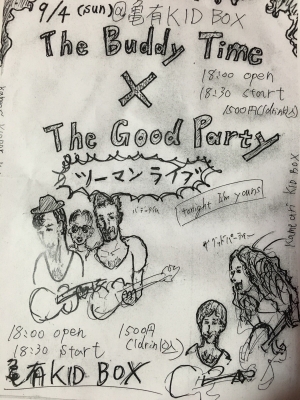 9/4 (sun) @亀有KID BOX
The Buddy Time
18:00 open
18:30 start
1500円(1drink込)
×
The Good Party
ツーマンライブ
tonight I'm yours
バディータイム
ザ グッドパーティー
Kameari KID BOX
18:00 open
18:30 start
1500円
(1drink込)
亀有KID BOX